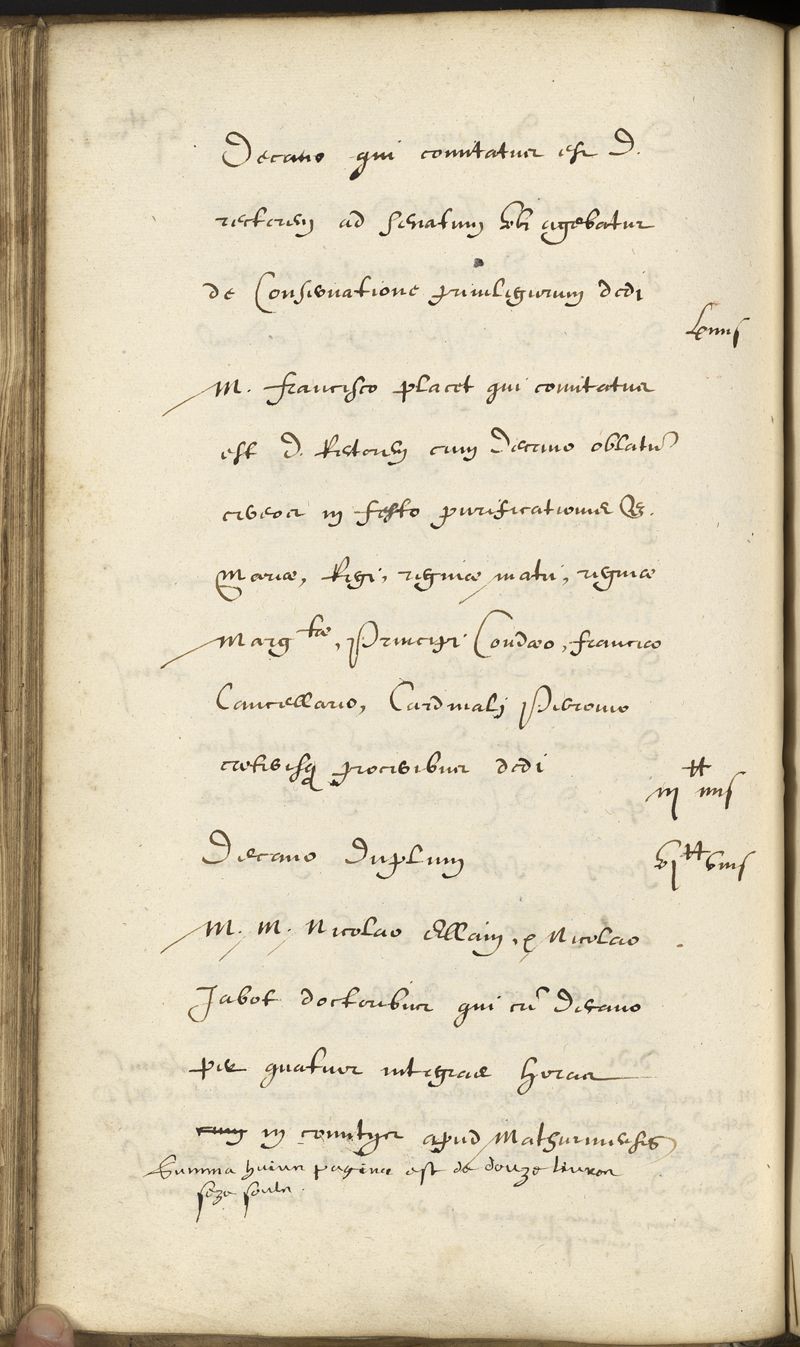 Decano qui comitatus est D.
rectorem ad senatum ubi agebatur
de Conservatione privilegiorum dedi
lxiiiis
M. francisco placet qui comitatus
est D. Rectorem cum Decano oblatũ
cereos in festo purificationis B.
Mariæ, Regi, reginæ matri, reginæ
Marg tæ, Principi Condæo, franciæ
Cancellario, Cardinali Peronio
cæterisq proceribus dedi
iii ₶ iiiis
Decano Duplum
vi ₶ viiis
M. M. Nicolao Ellain, & Nicolao
Jabot doctoribus qui cũ Decano
per quatuor integras horas
cum in comitijs apud Mathurinenses
Summa huius paginæ est de douze livres
seze soulz